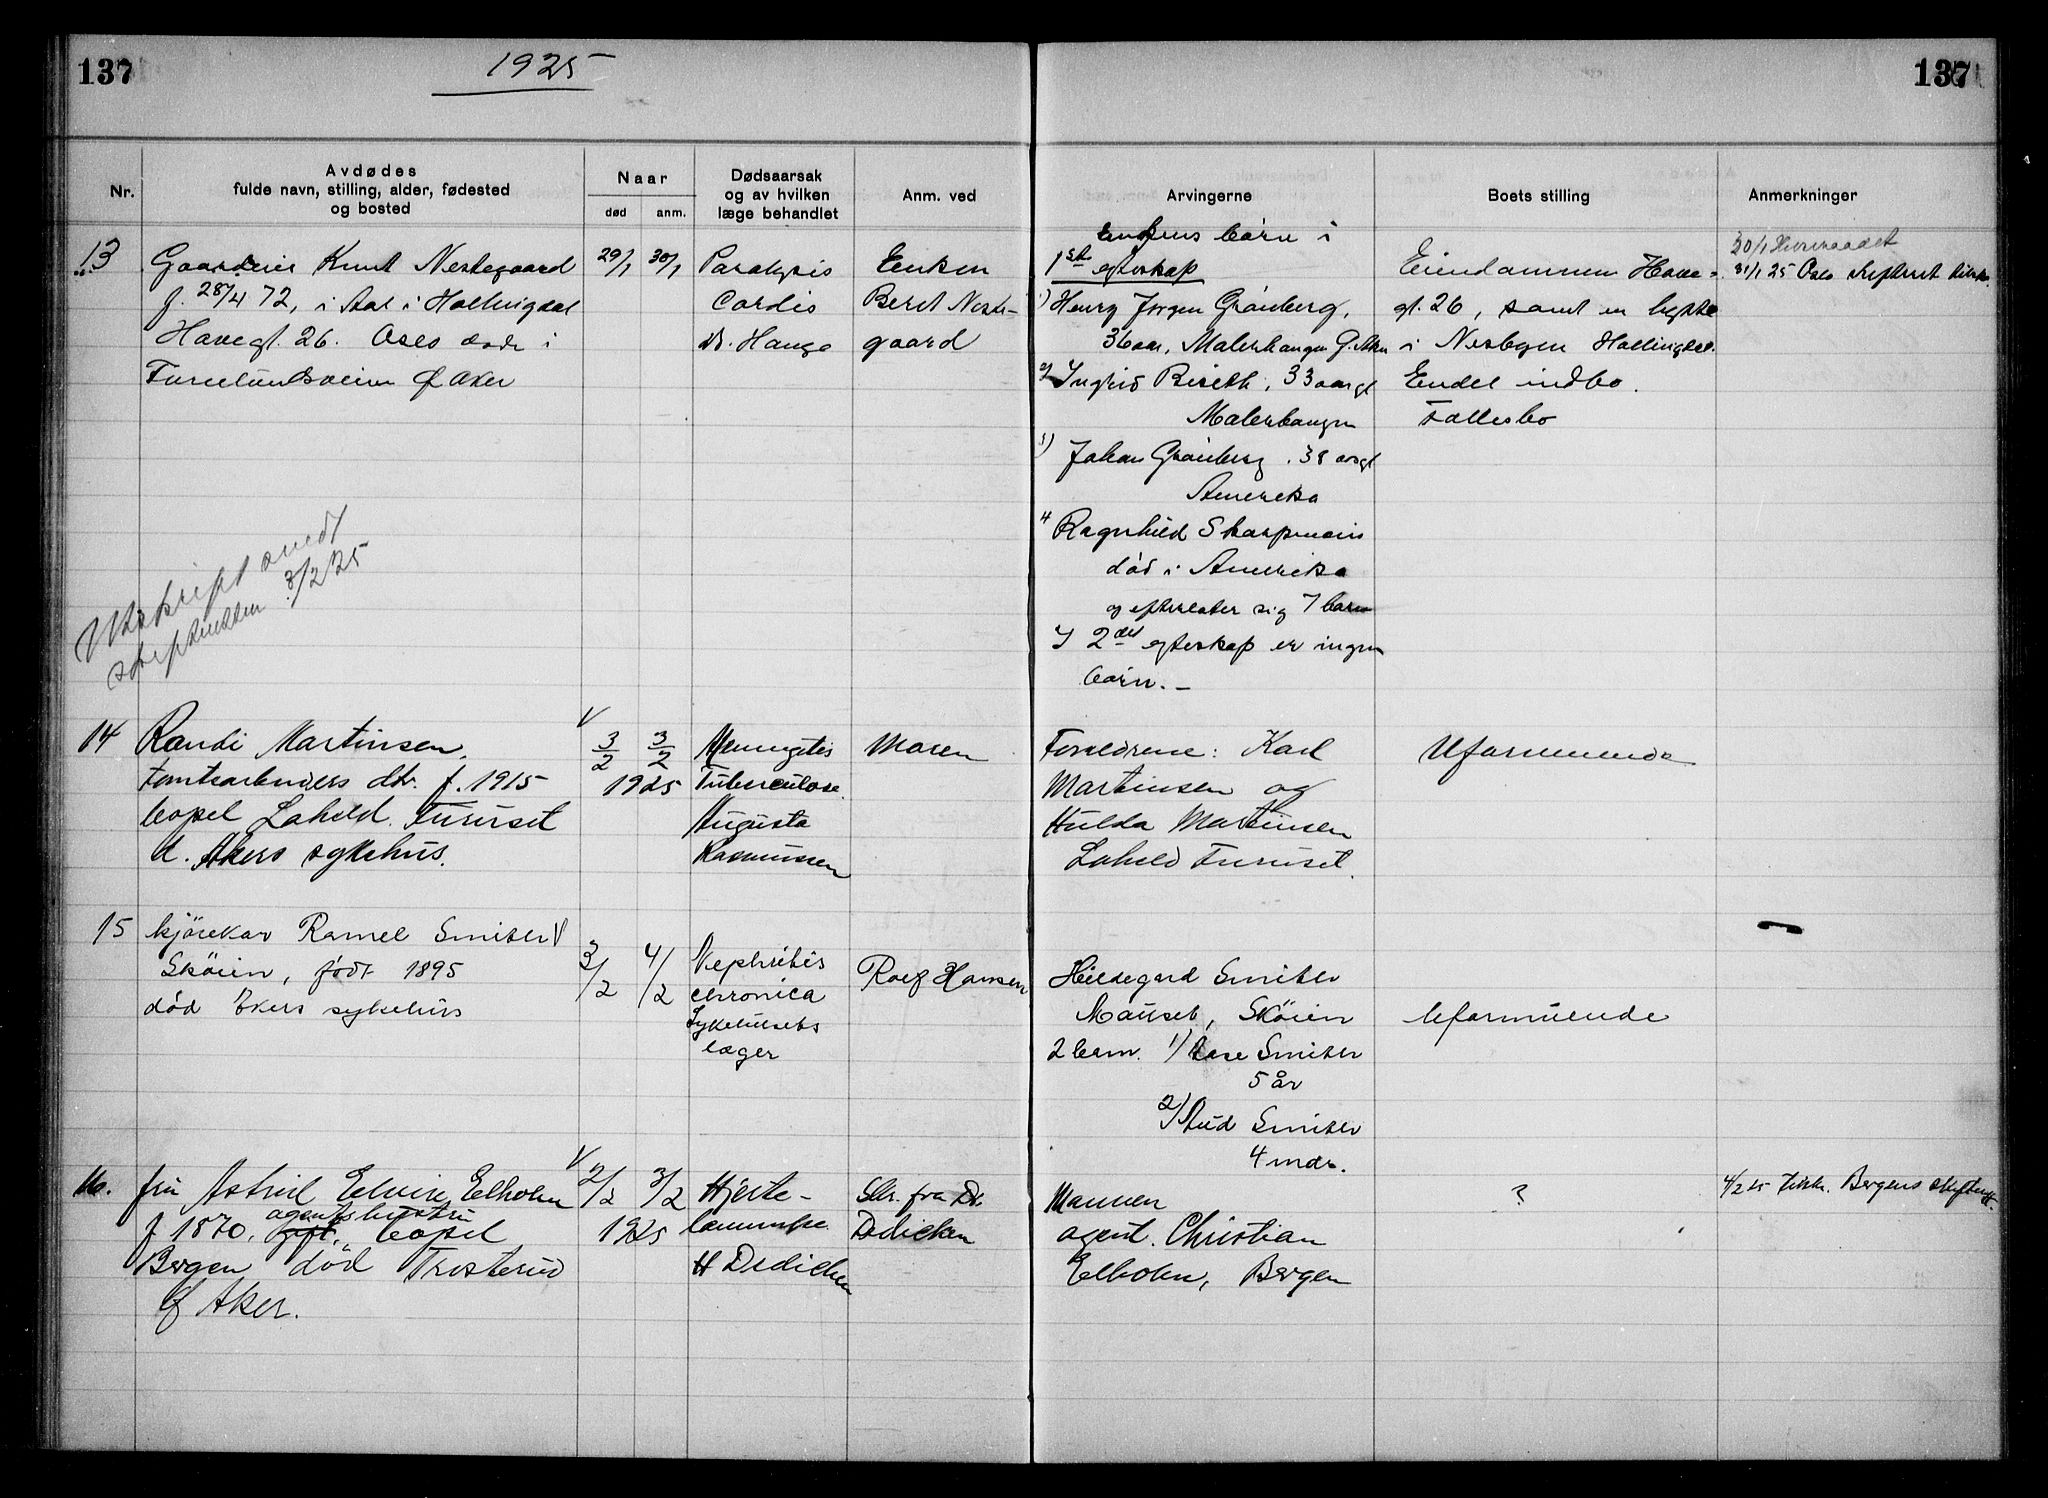 137
1925
137
Nr.
Avdødes
fulde navn, stilling, alder, fødested
og bosted
Naar
død
anm.
Dødsaarsak
og av hvilken
læge behandlet
Anm. ved
Arvingerne
Boets stilling
Anmerkninger
13
Gaardeier Knut Nestegaard
f. 28/4 72, i Aal i Hallingdal
Havegt. 26. Oslo døde i
Ø Aker
29/1
30/1
Paralysis
Cordis
Dr. Hauge
Enken
Beret Neste-
gaard
Enkens børn i
1ste egteskap
1) Henry Jørgen Grønberg,
36 aar, Malerhaugen Ø. Aker
2) Ingrid Biseth, 33 aar gl
Malerhaugen
3) Johan Grønberg. 38 aar gl
Amerika
4 Ragnhild
død i Amerika
og efterlater sig 7 barn
I 2det egteskap er ingen
børn. –
Eiendommen Have-
gt. 26, samt en hytte
i Nesbyen Hallingdal.
Endel indbo.
Fællesbo
30/1 Herredet
31/1 25 Oslo skifteret
Utskrift sendt
skifteretten 3/2 25
14
Randi Martinsen,
tomtearbeiders dtr. f. 1915
bopel Lohild. Furuset
d. Akers sykehus.
3/2
3/2
1925
Meningitis
Tuberculose.
Augusta
Rasmussen
Moren
Foreldrene: Karl
Martinsen og
Hulda Martinsen
Lohild Furuset.
Uformuende
15
kjørekar Ramel Smiter
Skøien, født 1895
død Akers sykehus
3/2
4/2
Nephritis
chronica
Sykehusets
læger
Rolf Hansen
Hildegard Smiter
Skøien
2 barn. 1) Aase Smiter
5 år
2) Aud Smiter
4 mdr.
Uformuende
16.
fru Astrid Elvire Elholm
f 1870, gift, agentshustru bopel
Bergen død Trosterud
Ø Aker.
2/2
3/2
1925
Hjerte-
lammelse
H Dedichen
Skr. fra Dr.
Dedichen
Mannen
agent. Christian
Elholm, Bergen
?
4/2 25 Bergens skifterett.